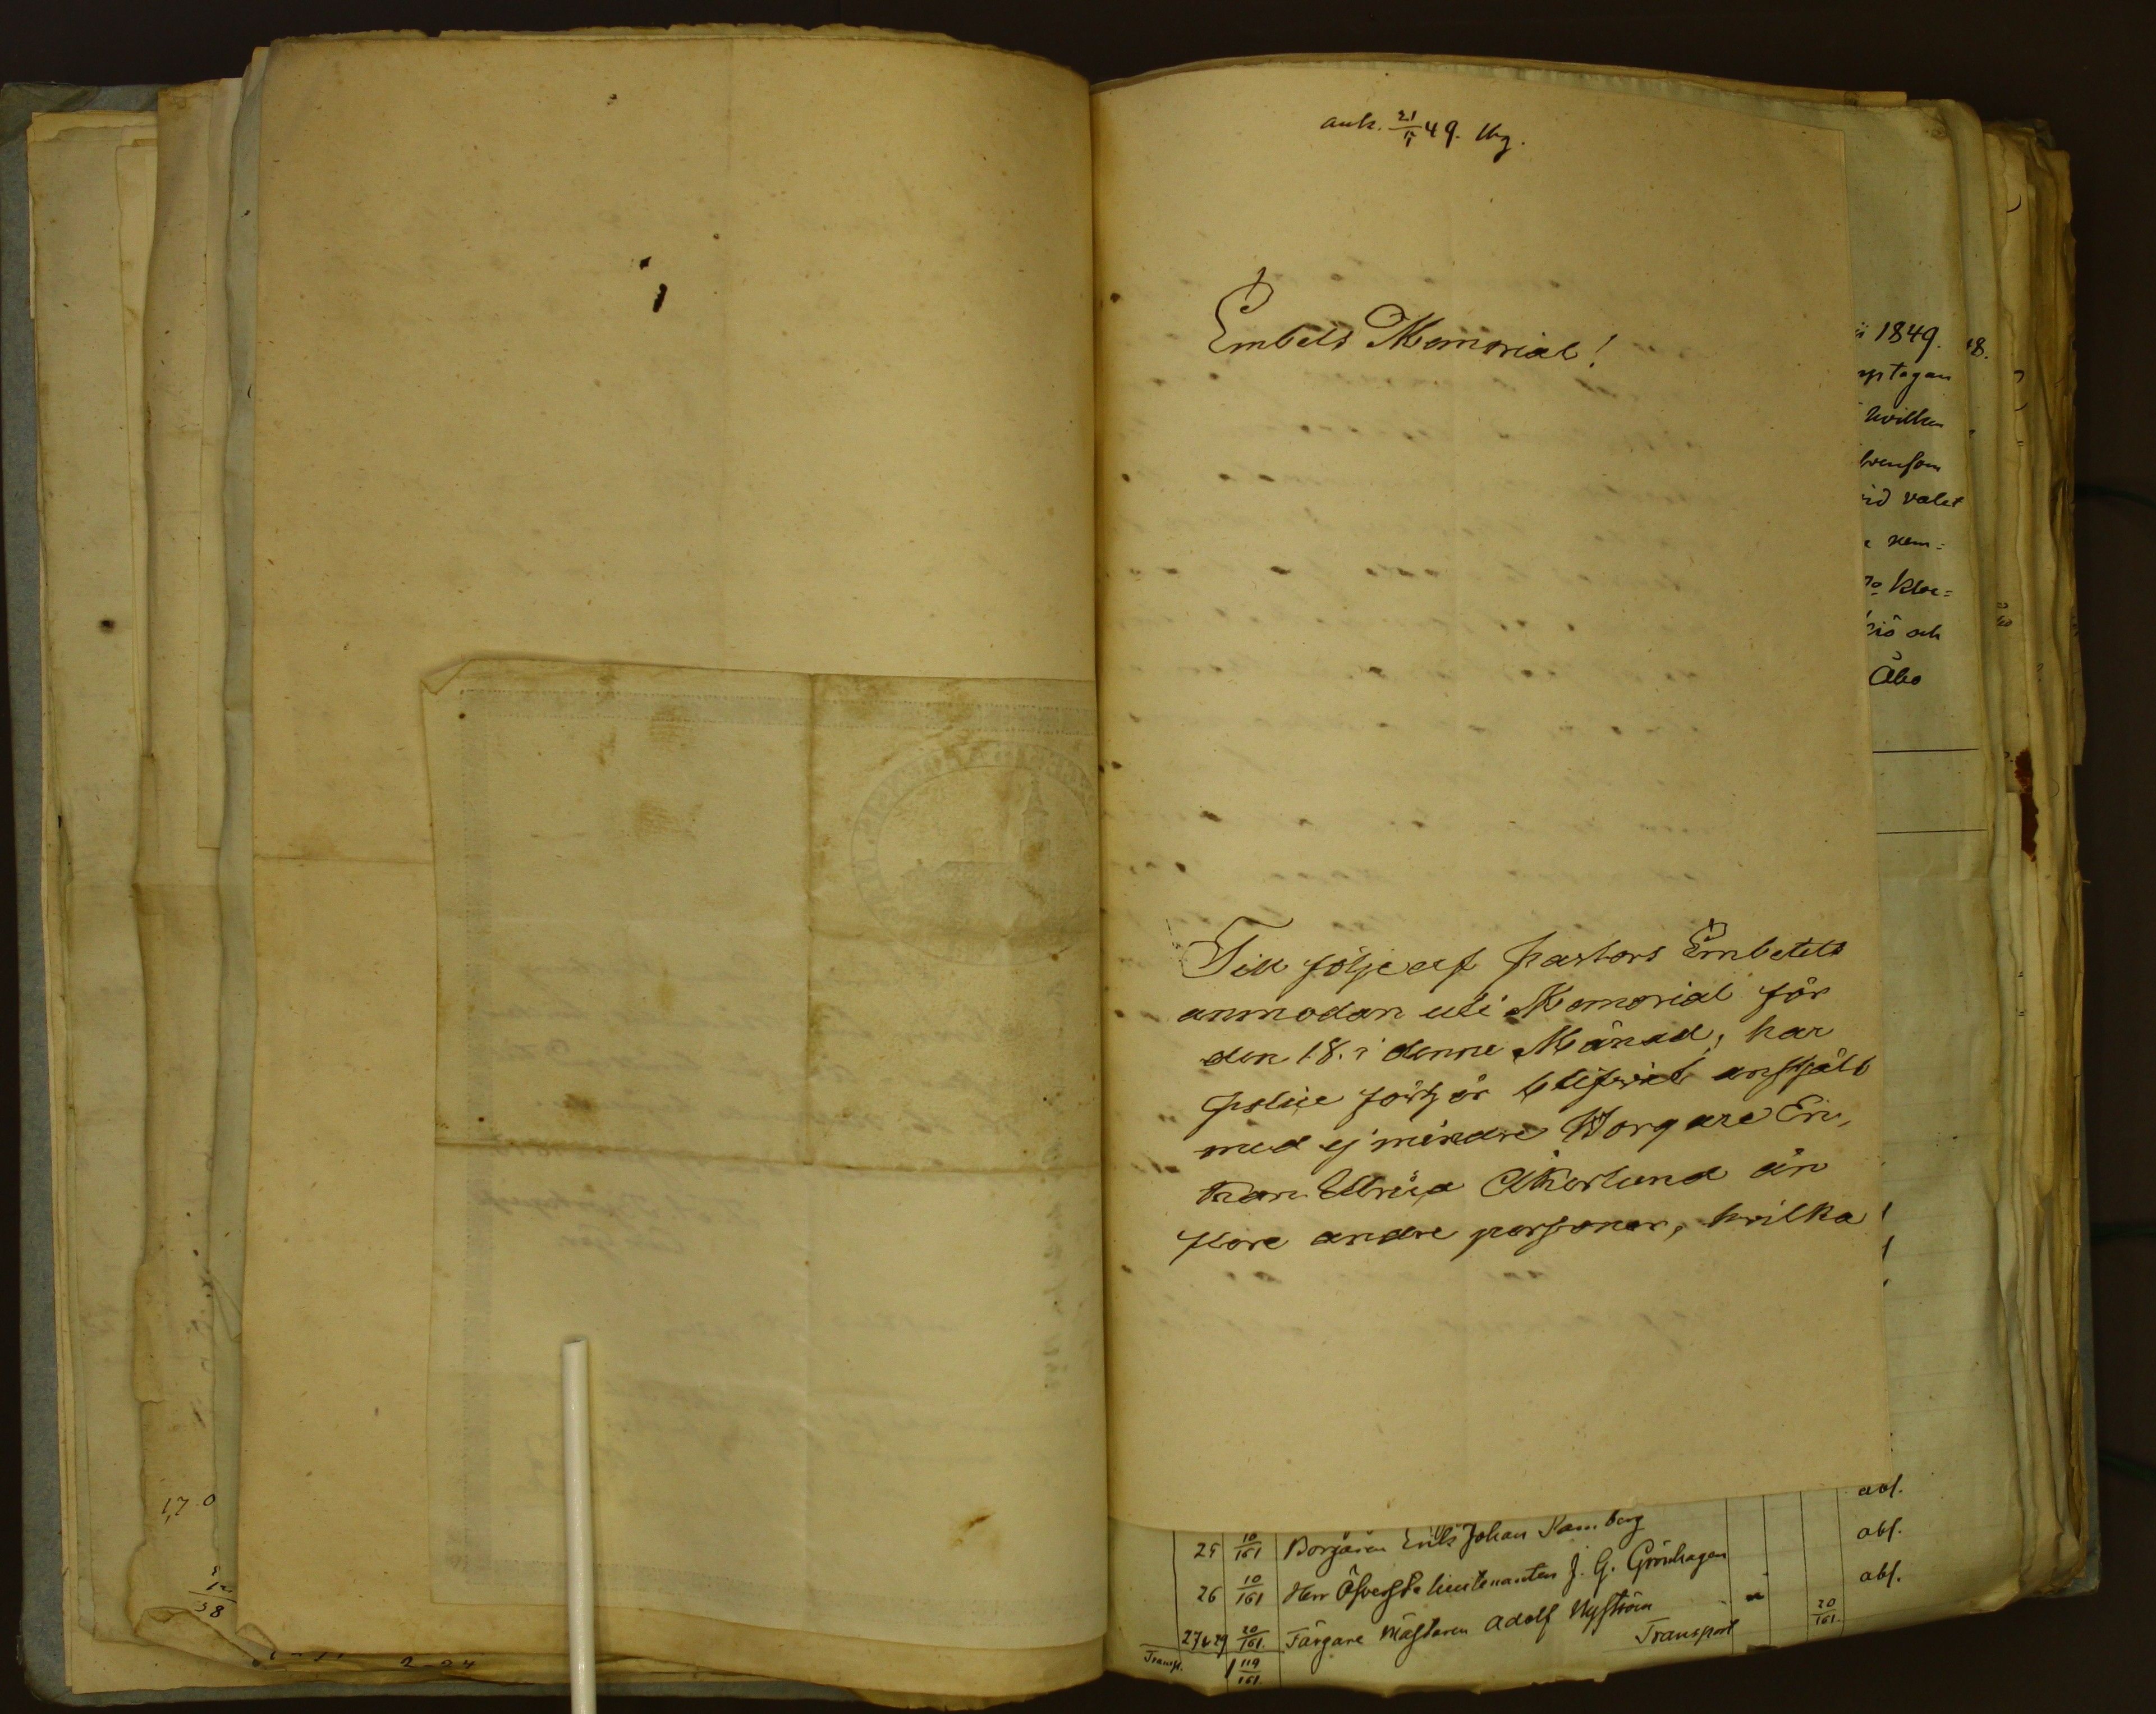 ank. 21/5 49.
Embets Memorial!
Till följe af Pastors Embetets
anmodan uti Memorial för
den 18. i denne Månad, har
police förhör blifvit anstält
med ej mindre Borgare En,
kan Ulrica Åkerlund än
flere andre personer, hvilka
i 1849.
8.
uptagan
hvilken
äfvensom
vid valet
nem=
och
Åbo
abs.
25 10/161 Borgaren Erik Johan Ramberg abs.
26 10/161 Herr Öfverste lieutenanten J. G. Grönhagen abs.
27 & 29 20/161. Färgare Mästaren Adolf Nyström " 20/161.
Transp. 1 119/161. Transport